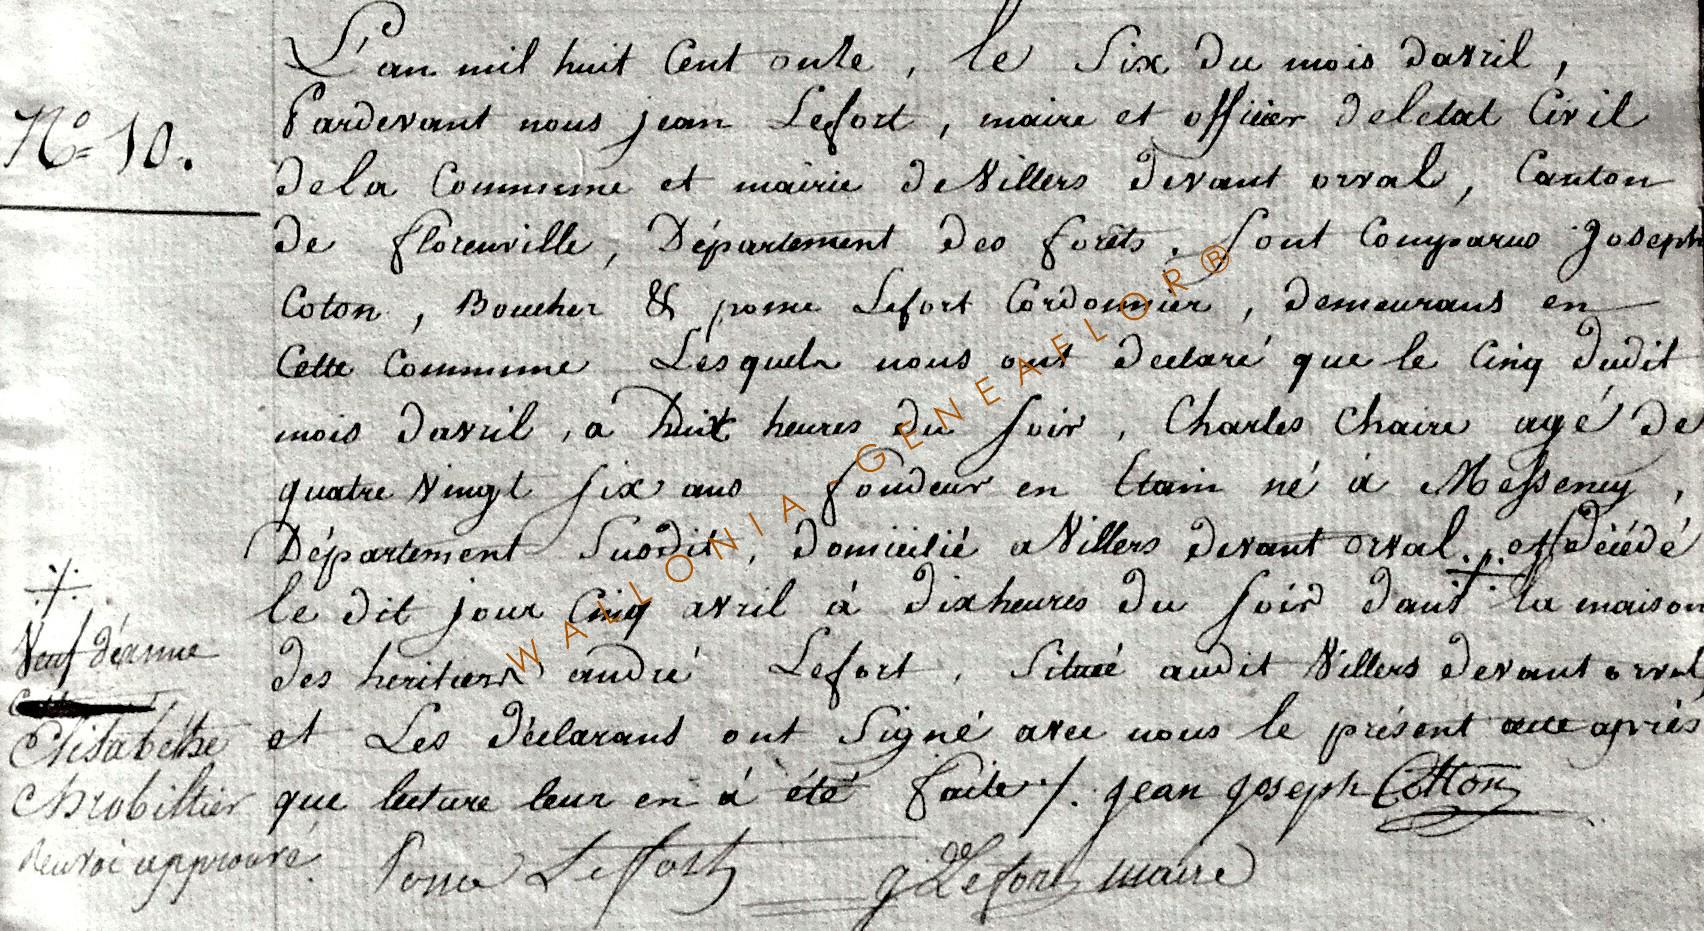 L'an mil huit Cent onze, le Six du mois davril,
N.o 10.
Pardevant nous jean Lefort, maire et officier deletat Civil
dela Commune et mairie deVillers devant orval, Canton
de florenville, Département des forêts, Sont Comparus Joseph
Coton, Boucher & ponce Lefort Cordonnier, demeurans en
Cette Commune Lesquels nous ont déclaré que le Cinq dudit
mois davril, a heures du Soir, Charles Chaire agé de
quatre Vingt Six ans fondeur en Etain né à Messency,
Département Susdit, domicilié aVillers devant orval. ·/· est décédé
le dit jour Cinq avril à dix heures du Soir dans la maison
des heritiers andré Lefort, Située audit Villers devant orval,
et Les déclarans ont Signé avec nous le présent acte après
que lecture leur en à été faite ·/. jean joseph Cotton
Ponce Lefort
g Lefort maire
·/·
Veuf déanne
Elisabethe
Chrobiltier
Renvoi approuvé.
WALLONIA - GENEAFLOR®